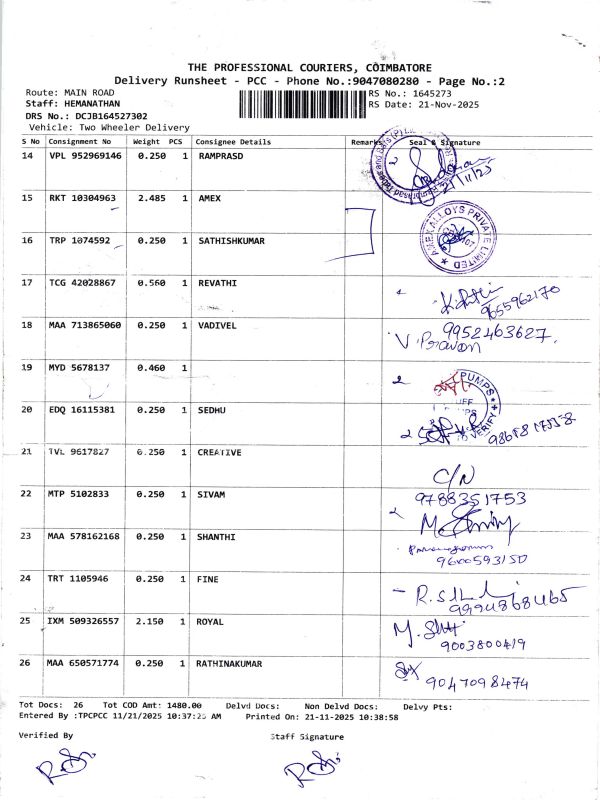 THE PROFESSIONAL COURIERS, COIMBATORE
Delivery Runsheet - PCC - Phone No.:9047080280 - Page No.:2
Route: MAIN ROAD
RS No.: 1645273
Staff: HEMANATHAN
RS Date: 21-Nov-2025
DRS No.: DCJB164527302
Vehicle: Two Wheeler Delivery
S No Consignment No Weight PCS Consignee Details Remarks Seal & Signature
14 VPL 952969146 0.250 1 RAMPRASD
21/11/25
15 RKT 10304963 2.485 1 AMEX
AMEX ALLOYS PRIVATE LIMITED
16 TRP 1074592 0.250 1 SATHISHKUMAR
17 TCG 42028867 0.560 1 REVATHI
9655962170
18 MAA 713865060 0.250 1 VADIVEL
9952463627.
V. Pravan
19 MYD 5678137 0.460 1
PUMPS
20 EDQ 16115381 0.250 1 SEDHU
VERIFY
21 TVL 9617827 0.250 1 CREATIVE
C/N
22 MTP 5102833 0.250 1 SIVAM
9788351753
23 MAA 578162168 0.250 1 SHANTHI
9600593150
24 TRT 1105946 0.250 1 FINE
9994868465
25 IXM 509326557 2.150 1 ROYAL
9003800419
26 MAA 650571774 0.250 1 RATHINAKUMAR
9047098474
Tot Docs: 26 Tot COD Amt: 1480.00 Delvd Docs: Non Delvd Docs: Delvy Pts:
Entered By :TPCPCC 11/21/2025 10:37:25 AM Printed On: 21-11-2025 10:38:58
Verified By Staff Signature